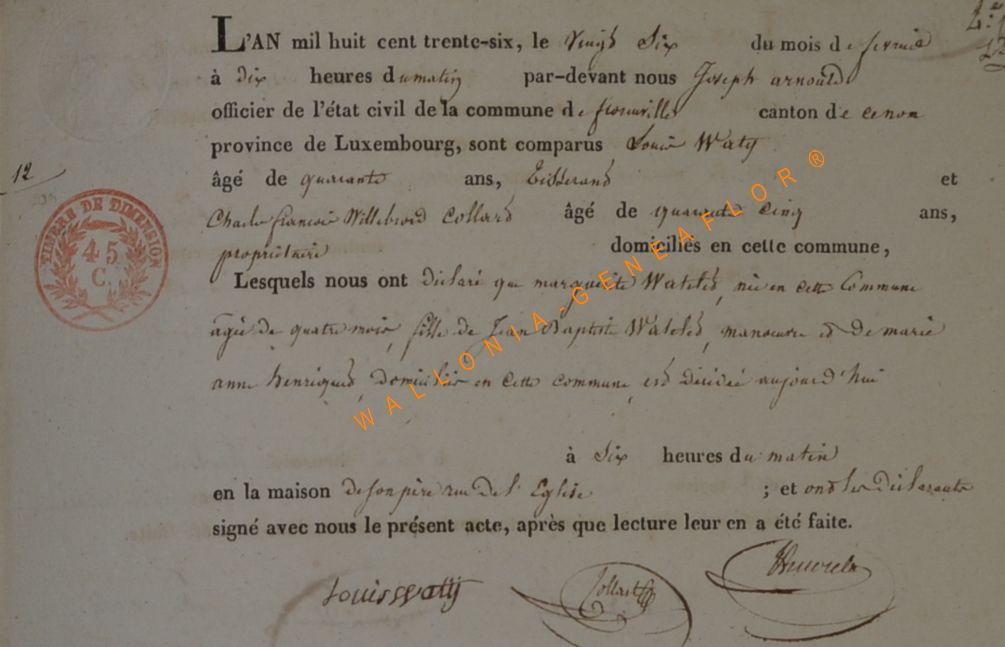 L'AN mil huit cent trente-six, le vingt six du mois de fevrier
à dix heures du matin par-devant nous Joseph arnould
officier de l'état civil de la commune de florenville canton de
province de Luxembourg, sont comparus Louis Waty
12
âgé de quarante ans, Tisserand et
Charles francois Willebrord Collard âgé de quarante cinq ans,
propriétaire domiciliés en cette commune,
TIMBRE DE DIMENSION
45
C.
Lesquels nous ont déclaré que marguerite Watelet, née en cette Commune
agée de quatre mois, fille de Jean Baptist Watelet, manoeuvre et de marie
anne henriquet, domiciliés en cette commune, est décédée aujourd'hui
à six heures du matin
en la maison de son père rue de l'Eglise ; et ont les déclarants
signé avec nous le présent acte, après que lecture leur en a été faite.
Louis Watÿ
Collart
WALLONIA-GENEAFLOR®